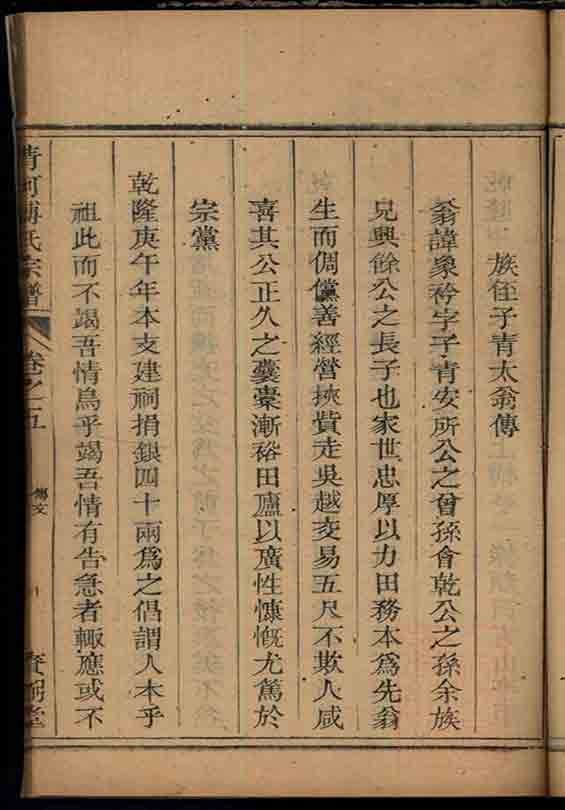 族侄子青太翁傳
翁諱象衿字子青安所公之曾孫會乾公之孫余族
兄興餘公之長子也家世忠厚以力田務本爲先翁
生而倜儻善經營挾貲走吳越交易五尺不欺人咸
喜其公正久之囊橐漸裕田廬以廣性慷慨尤篤於
宗黨
乾隆庚午年本支建祠捐銀四十兩爲之倡謂人本乎
祖此而不竭吾情烏乎竭吾情有告急者輙應或不
清河傅氏宗譜
卷之五
傳文
堂